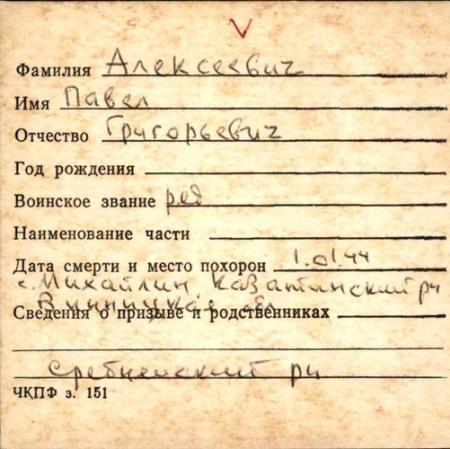 Фамилия Алексеевич
Имя Павел
Отчество Григорьевич
Год рождения
Воинское звание ряд
Наименование части
Дата смерти и место похорон 1.01.44
с. Михайлин Казатинский рн
Винницкая обл
Сведения о призыве и родственниках
Сребнянский рн
ЧКПФ з. 151